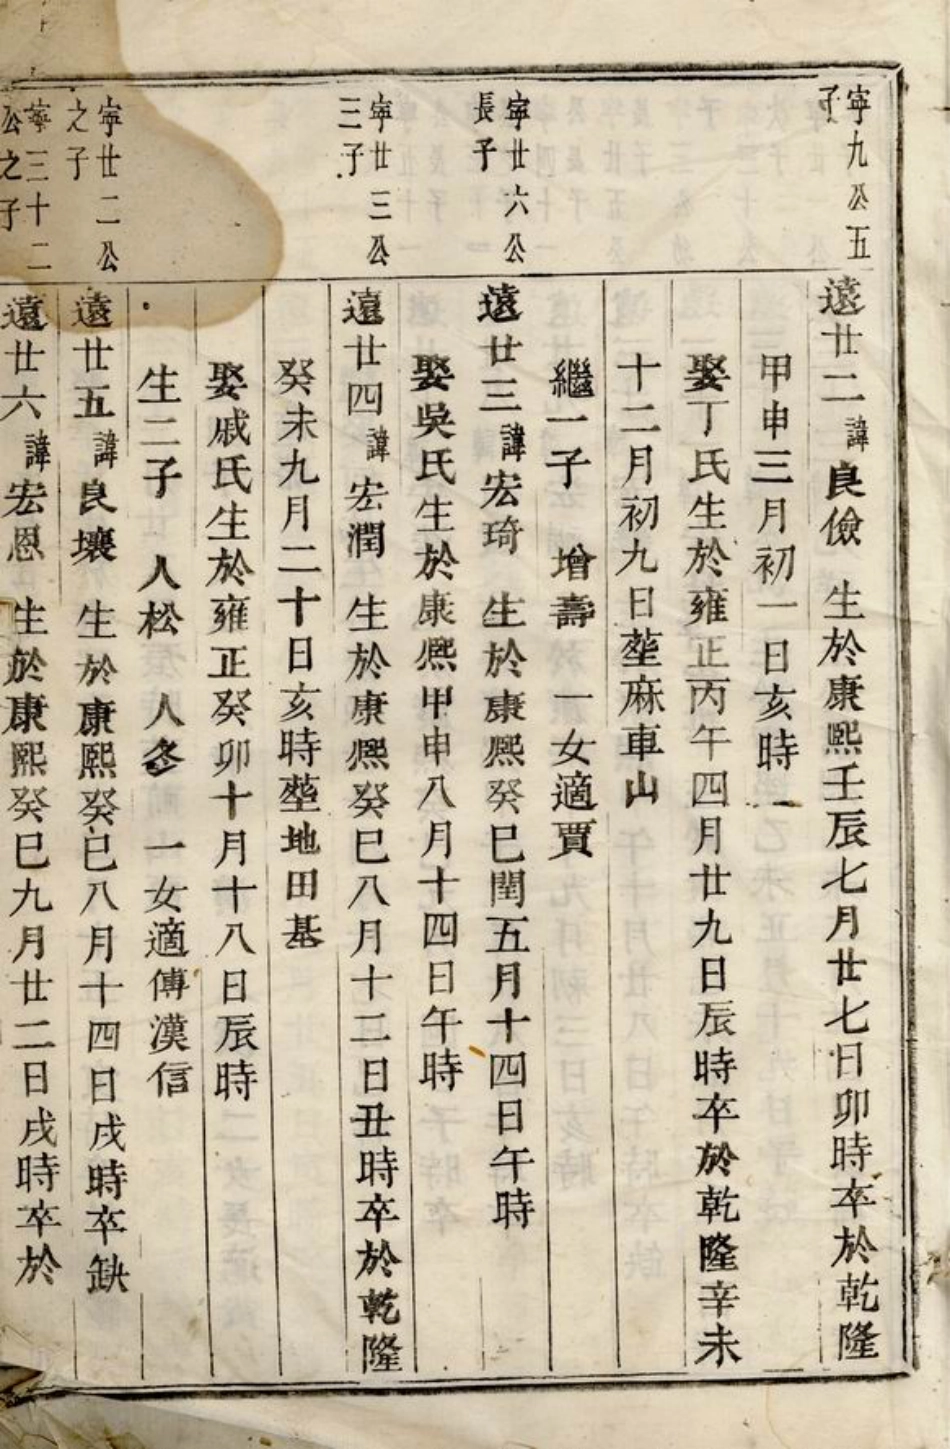 寧九公五
子
遠廿二諱良儉 生於康熙壬辰七月廿七日卯時卒於乾隆
甲申三月初一日亥時
娶丁氏生於雍正丙午四月廿九日辰時卒於乾隆辛未
十二月初九日塟麻車山
繼一子 增壽 一女適賈
寧廿六公
長子
遠廿三諱宏琦 生於康熙癸巳閏五月十四日午時
娶吳氏生於康熙甲申八月十四日午時
寧廿三公
三子
遠廿四諱宏潤 生於康熙癸巳八月十二日丑時卒於乾隆
癸未九月二十日亥時塟地田基
娶戚氏生於雍正癸卯十月十八日辰時
生二子 人松 人冬 一女適傅漢信
寧廿二公
之子
遠廿五諱良壤 生於康熙癸巳八月十四日戌時卒缺
寧三十二
公之子
遠廿六諱宏恩 生於康熙癸巳九月廿二日戌時卒於